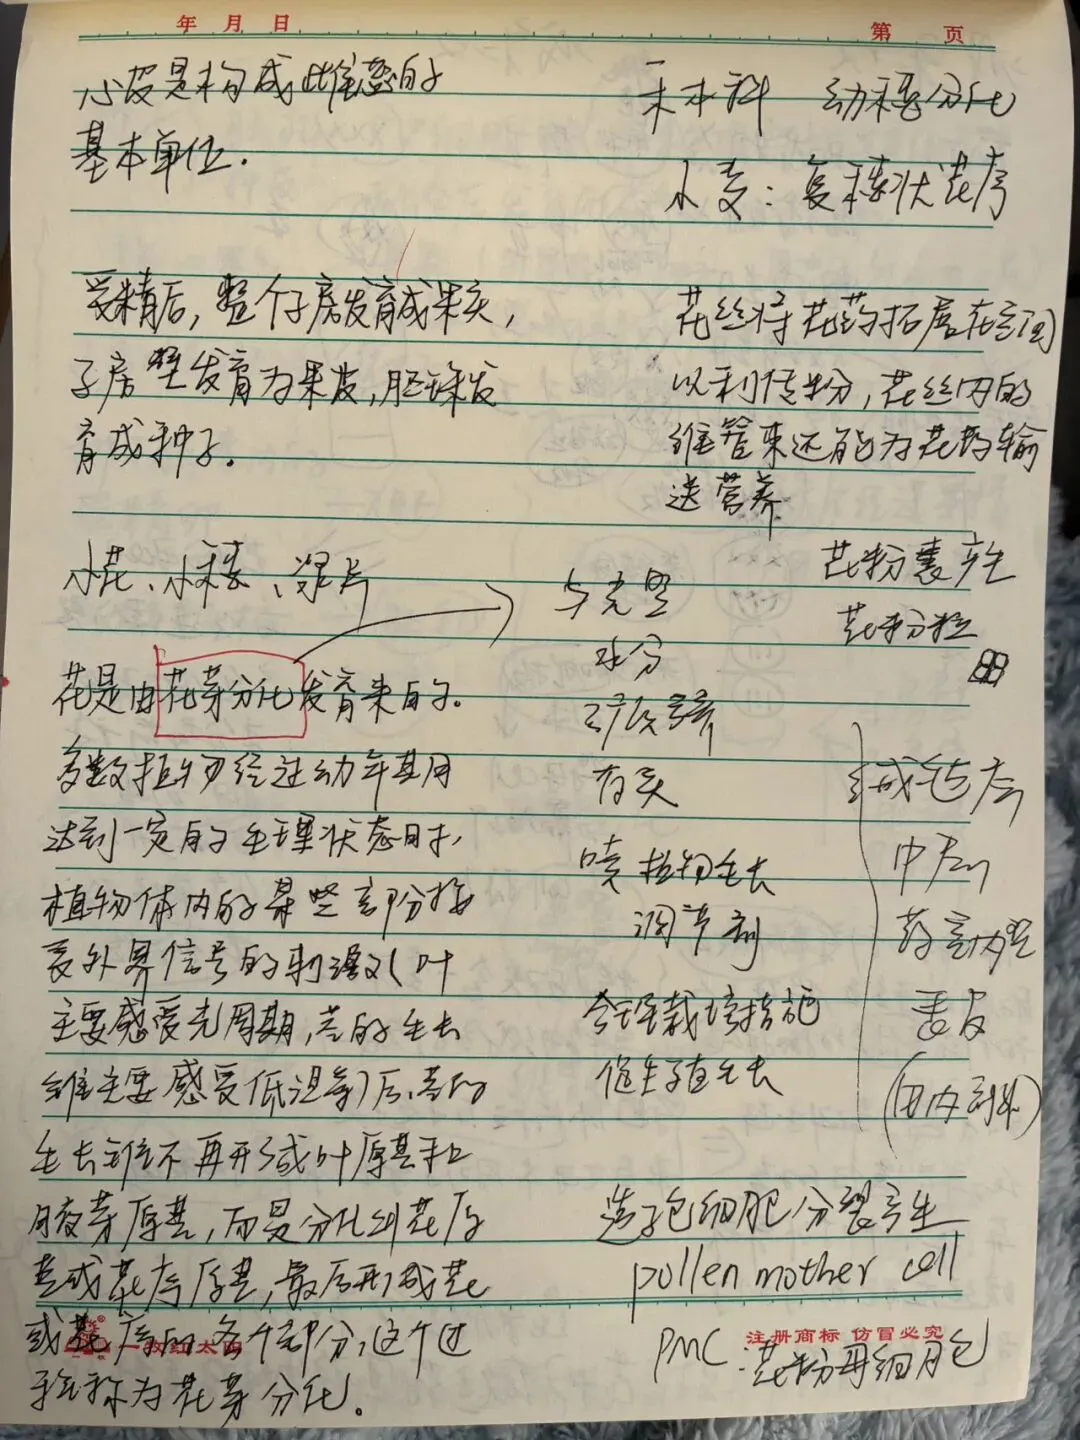 年 月 日
第 页
心皮是构成雌蕊的
基本单位.
受精后,整个子房发育成果实,
子房壁发育为果皮,胚珠发
育成种子。
小花、小穗、浆片
花是由花芽分化发育来的。
多数植物经过幼年期
达到一定的生理状态时,
植物体内的某些部分接
受外界信号的刺激(叶
主要感受光周期,茎的生长
锥主要感受低温等)后,茎的
生长锥不再形成叶原基和
腋芽原基,而是分化出花原
基或花序原基,最后形成花
或花序的各个部分,这个过
程称为花芽分化。
禾本科 幼穗分化
小麦:复穗状花序
花丝将花药拓展在空间
以利传粉,花丝内的
维管束还能为花药输
送营养
花粉囊产生
花粉粒
与光照
水分
营养
有关
喷植物生长
调节剂
合理栽培措施
促生殖生长
纤维层
中层
药室内壁
表皮
造孢细胞分裂产生
pollen mother cell
PMC:花粉母细胞
一枚红太阳
注册商标 仿冒必究